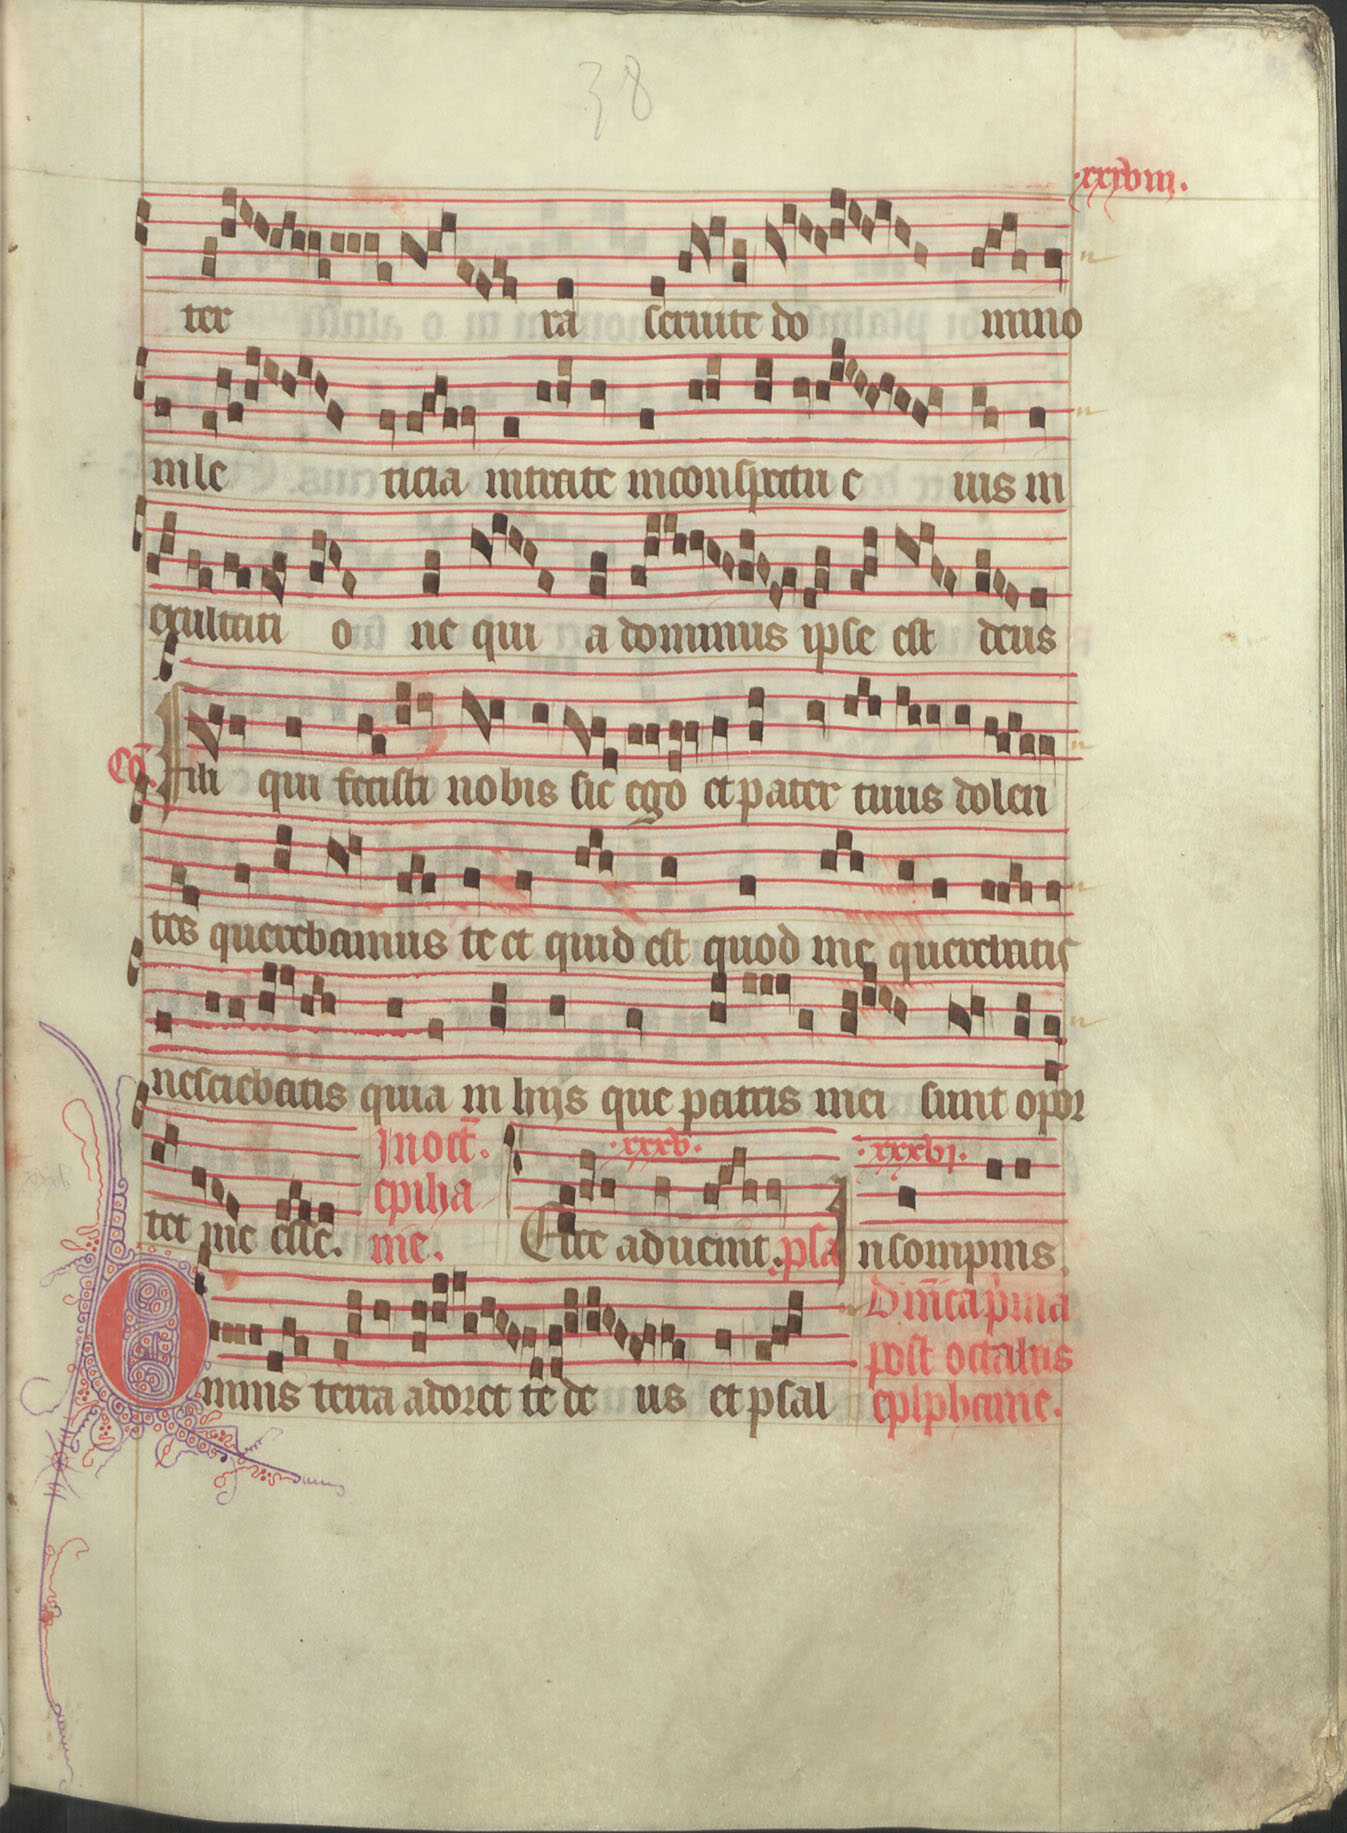 38
.xxxviii.
ter ra seruite do mino
in le ticia intrate in conspectu e ius in
exultati o ne qui a dominus ipse est deus
Co. Fili qui fecisti nobis sic ego et pater tuus dolen
tes querebamus te et quid est quod me querebatis
nesciebatis quia in hijs que patris mei sunt opor
tet me esse. In oct. epiha nie. .xxxv. Ecce aduenit. psa .xxxvi. In sompnis.
Omnis terra adoret te de us et psal Dnica prima post octabas epiphanie.